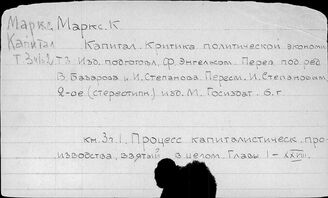 Маркс Маркс. К
Капитал Капитал. Критика политической эконом
Т 3 ч1в2 Т.3 Изд. подготовл. Ф. Энгельсом. Перев под ред
В. Базарова и И. Степанова. Пересм. И. Степановым
2-ое (стереотипн) изд. М. Госиздат. б. г.
кн. 3 ч. 1. Процесс капиталистическ. про-
изводства, взятый в целом. Главы I - XXVIII.